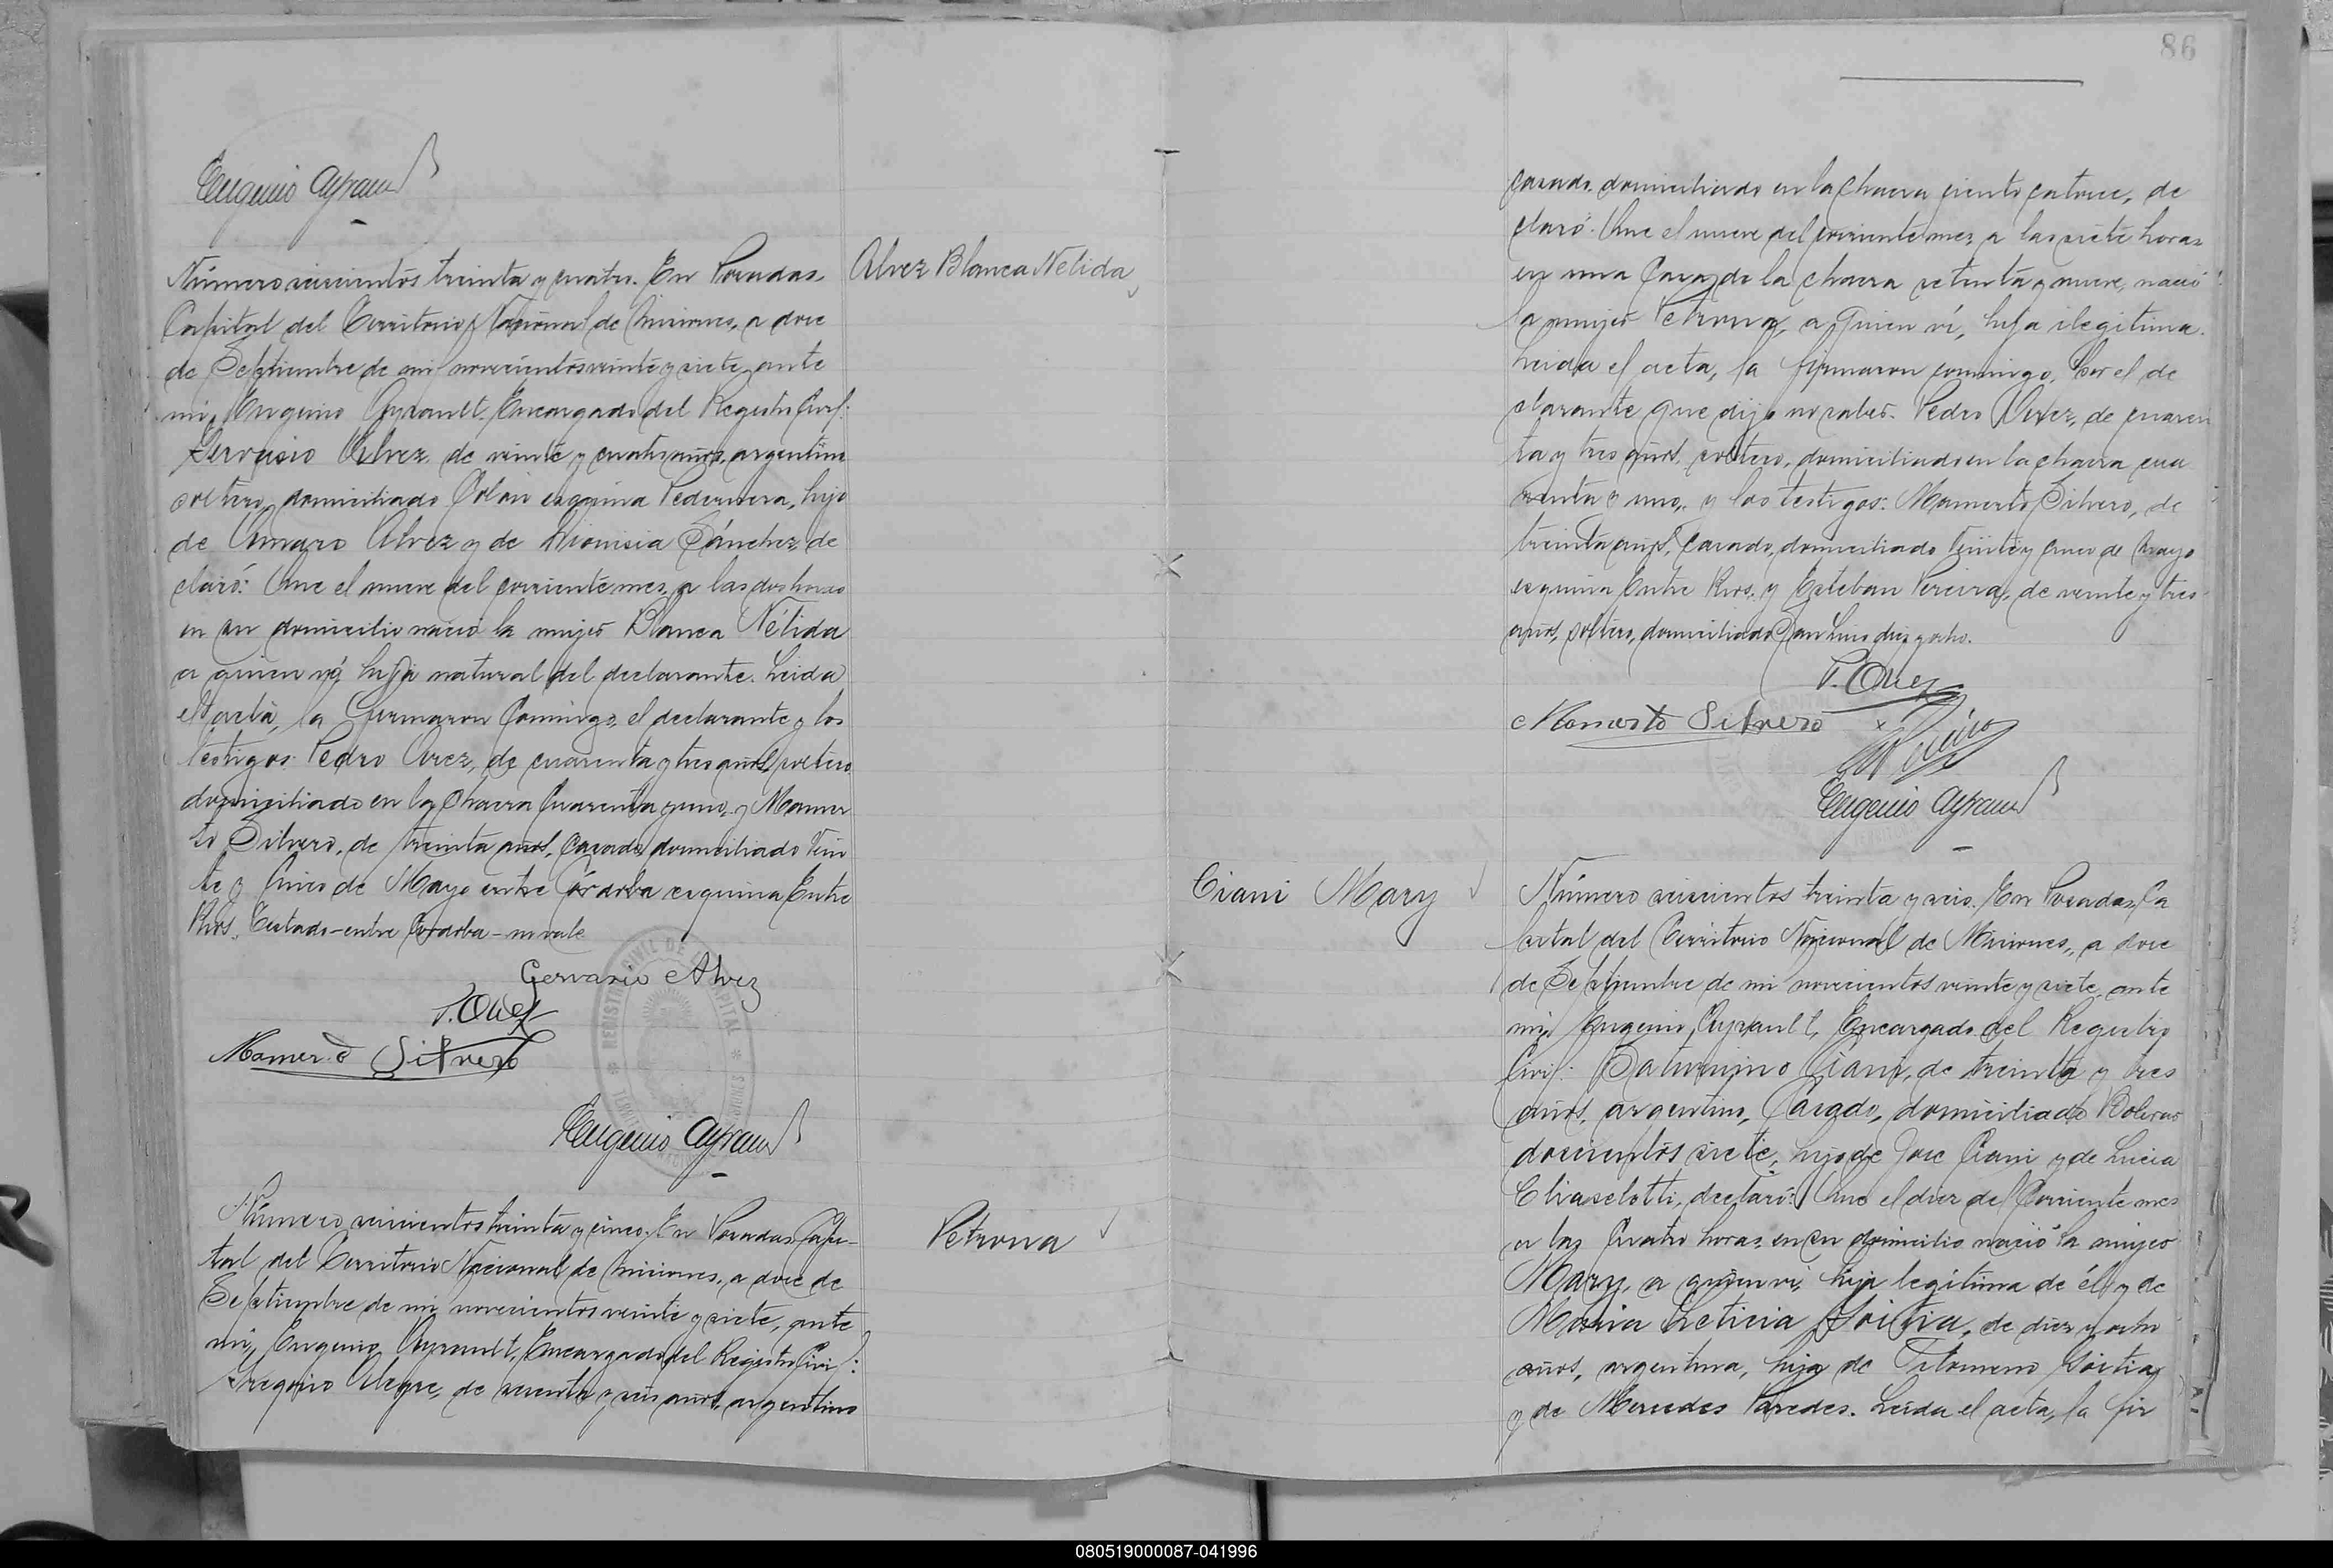 Eugenio Ayrault
Número seiscientos treinta y cuatro. En Posadas,
Alvez Blanca Nélida
Capital del Territorio Nacional de Misiones, a doce
de Septiembre de mil novecientos veinte y siete, ante
mí, Eugenio Ayrault, Encargado del Registro Civil:
Gervasio Alvez, de veinte y cuatro años, argentino
soltero, domiciliado Colón esquina Pedernera, hijo
de Amaro Alvez y de Dionisia Sánchez, de
claró: Que el nueve del corriente mes, a las dos horas
en su domicilio nació la mujer Blanca Nélida
a quien ví, hija natural del declarante. Leida
el acta, la firmaron conmigo, el declarante y los
testigos: Pedro, de cuarenta y tres años, soltero
domiciliado en la chacra cuarenta y uno, y Mamer
to Silvero, de treinta años, casado, domiciliado Vein
te y cinco de Mayo entre Córdoba esquina Entre
Rios. Testado-entre Cordoba-no vale
Gervasio Alvez
Mamerto Silvero
REGISTRO CIVIL DE LA CAPITAL
Eugenio Ayrault
Número seiscientos treinta y cinco. En Posadas, Capi-
Petrona
tal del Territorio Nacional de Misiones, a doce de
Septiembre de mil novecientos veinte y siete, ante
mí, Eugenio Ayrault, Encargado del Registro Civil:
Gregorio Alegre, de sesenta y seis años, argentino
86
casado, domiciliado en la chacra ciento catorce, de
claró: Que el nueve del corriente mes, a las siete horas
en una casa de la chacra setenta y nueve, nació
la mujer Petrona, a quien ví, hija ilegítima.
Leida el acta, la firmaron conmigo, por el de
clarante que dijo no saber: Pedro, de cuaren
ta y tres años, soltero, domiciliado en la chacra cua
renta y uno, y los testigos: Mamerto Silvero, de
treinta años, casado, domiciliado Veinte y cinco de Mayo
esquina Entre Rios, y Esteban Pereira, de veinte y tres
años, soltero, domiciliado San Luis diez y ocho.
Mamerto Silvero
Eugenio Ayrault
Ciani Mary
Número seiscientos treinta y seis. En Posadas, Ca
pital del Territorio Nacional de Misiones, a doce
de Septiembre de mil novecientos veinte y siete, ante
mí, Eugenio Ayrault, Encargado del Registro
Civil: Saturnino Ciani, de treinta y tres
años, argentino, casado, domiciliado Bolivar
doscientos siete, hijo de Jose Ciani y de Lucia
declaró: Que el diez del corriente mes
a las cuatro horas, en su domicilio nació la mujer
Mary, a quien ví, hija legítima de él y de
Maria Leticia Goitia, de diez y ocho
años, argentina, hija de Filomeno Goitia
y de Mercedes Paredes. Leida el acta, la fir
080519000087-041996